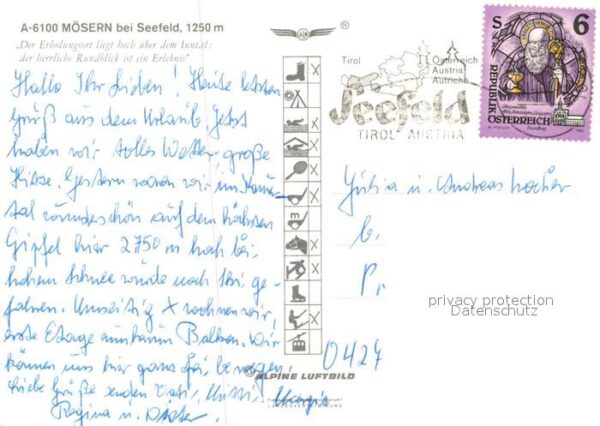 A-6100 MÖSERN bei Seefeld, 1250 m
„Der Erholungsort liegt hoch über dem Inntal:
der herrliche Rundblick ist ein Erlebnis"
Hallo Ihr Lieben! Heute letzten
Gruß aus dem Urlaub. Jetzt
haben wir tolles Wetter, große
Hitze. Gestern waren wir im
tal wunderschön auf dem höchsten
Gipfel hier 2750 m hoch bei
hohem Schnee wurde noch Ski ge-
fahren. Umseitig x wohnen wir,
erste Etage Balkon. Wir
können uns hier ganz bewegen.
Liebe Grüße senden Vati, Mutti, Margit
Regina u. Dieter.
Tirol
Österreich
Austria
Autriche
Seefeld
TIROL AUSTRIA
S 6
REPUBLIK
ÖSTERREICH
Julia u. Andreas
b.
Pr
privacy protection
Datenschutz
0424
ALPINE LUFTBILD